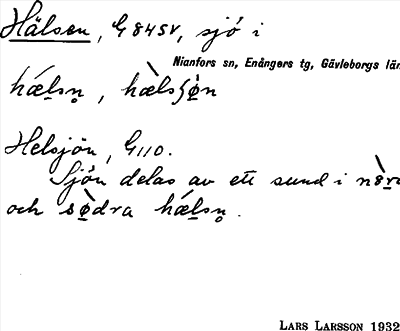 Hälsen, G 84 SV, sjö i
Nianfors sn, Enångers tg, Gävleborgs län
hǽlsn̥, hæ̀lsʃø̀n
Helsjön, G 110.
Sjön delas av ett sund i nø̀r
och sø̀dra hǽlsn̥.
LARS LARSSON 1932